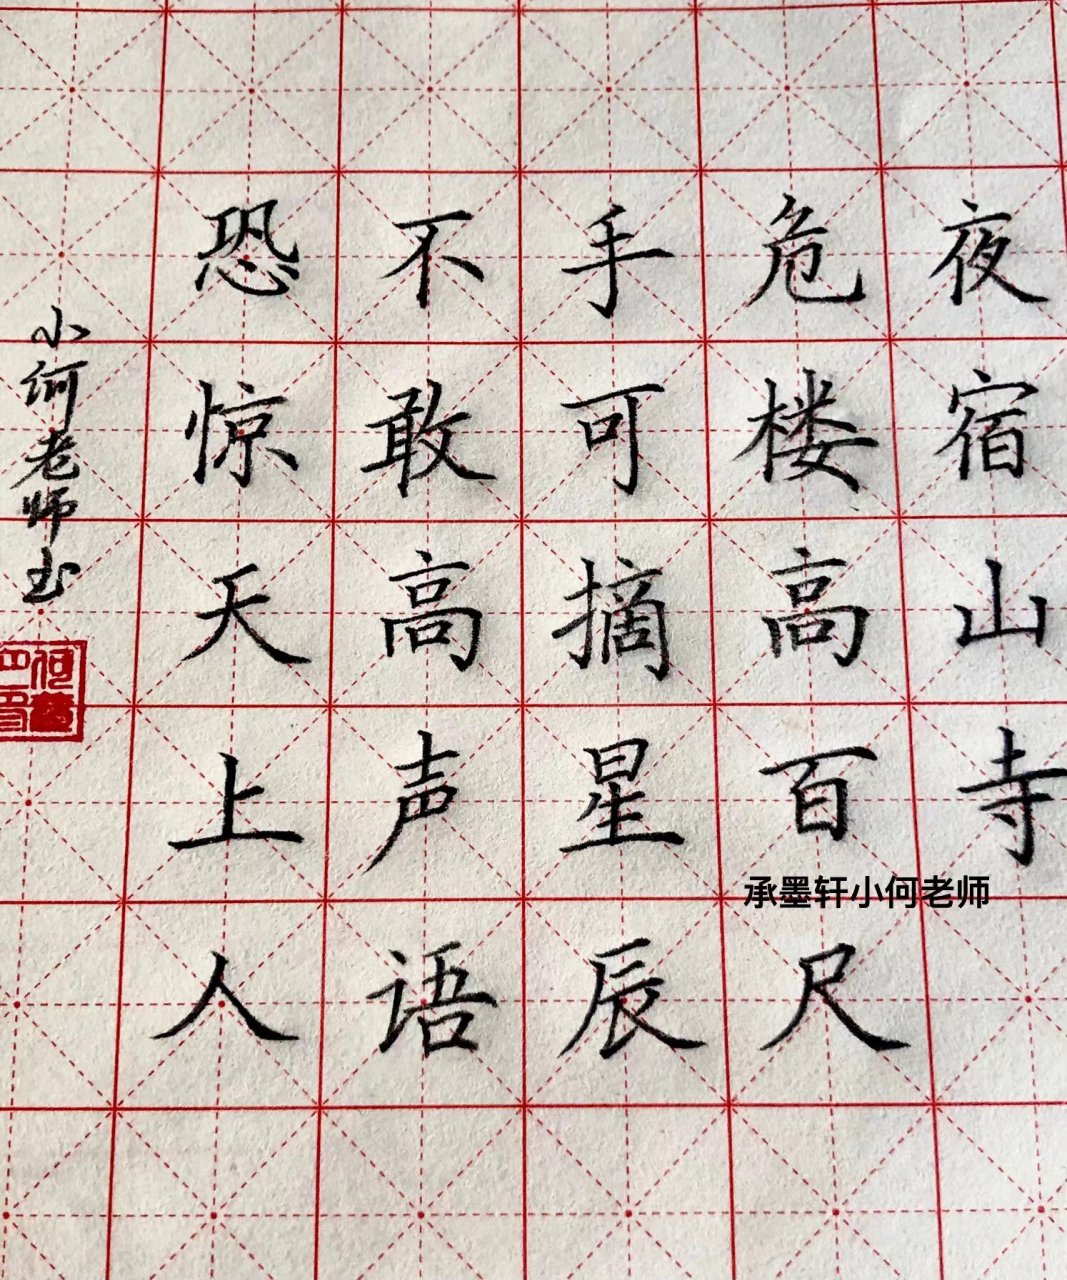 夜宿山寺
危楼高百尺
手可摘星辰
不敢高声语
恐惊天上人
小何老师书
承墨轩小何老师